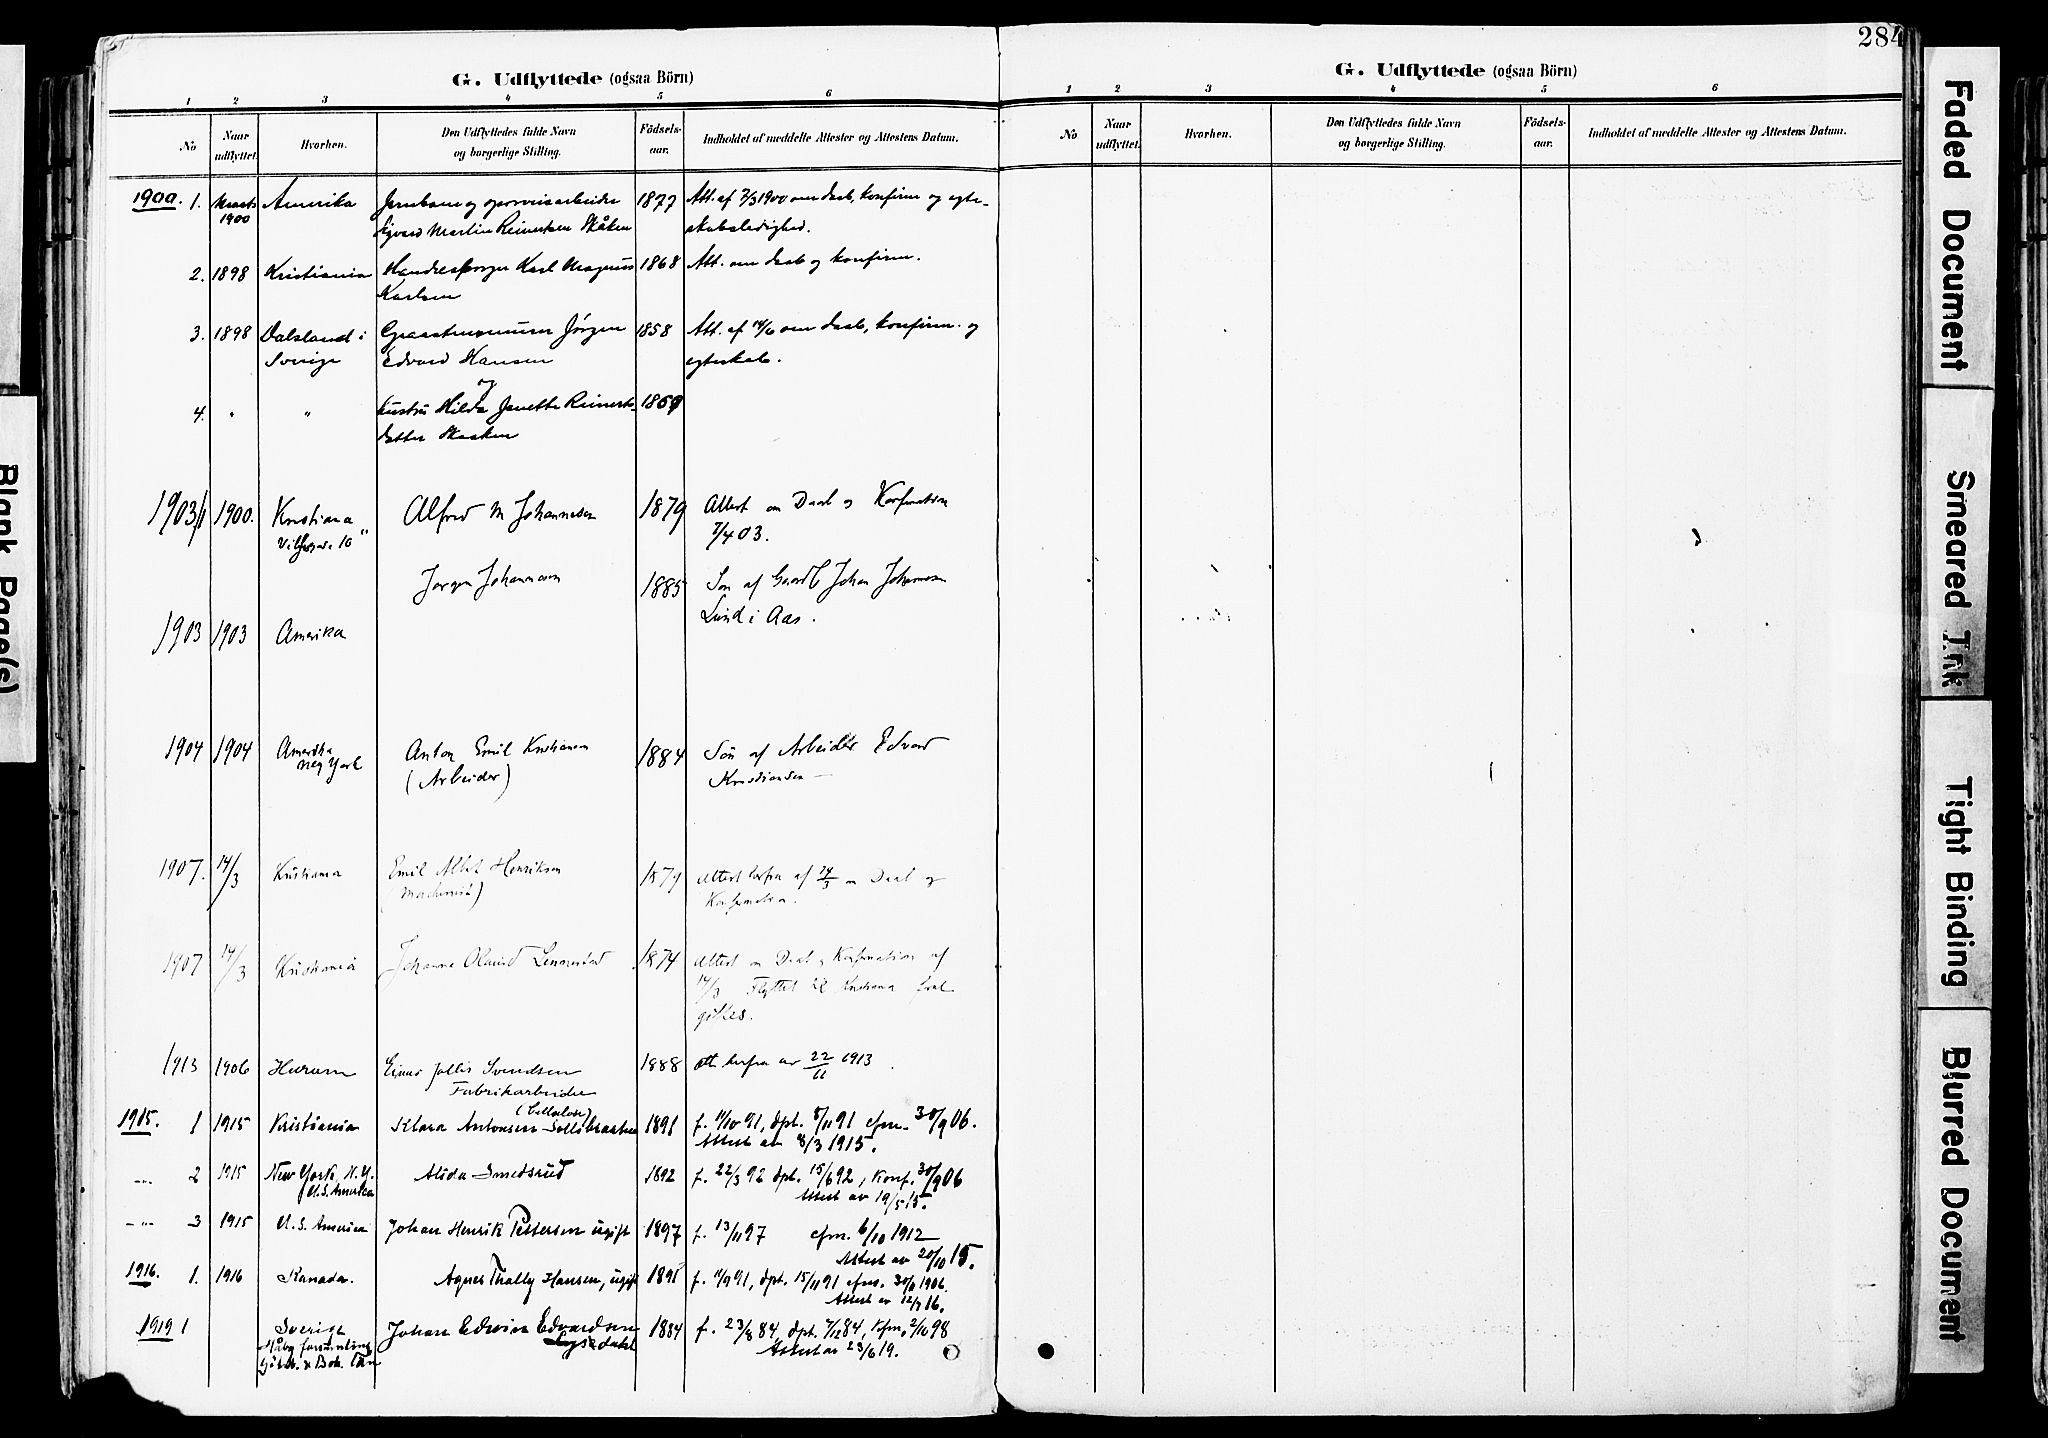 284
G. Udflyttede (ogsaa Börn)
1 2 3 4 5 6
No Naar udflyttet. Hvorhen. Den Udflyttedes fulde Navn og borgerlige Stilling. Födsels-aar. Indholdet af meddelte Attester og Attestens Datum.
1900. 1. Marts 1900 Amerika 1877 Att. af 7/3 1900 om daab, konfirm og egte-
Sigvard Martin Reinertsen Skåken skabsledighed.
2. 1898 Kristiania Karl Magnus 1868 Att. om daab og konfirm.
Karlsen
3. 1898 Dalsland i Jörgen 1858 Att. af 14/6 om daab, konfirm. og
Sverige Edvard Hansen egteskab.
og
4. " " hustru Hilda Janette Reinerts- 1869
datter Skaaken
1903/1 1900. Kristiania Alfred M Johannesen 1879 Attest om Daab og Konfirmation
10 7/4 03.
Jørgen Johannesen 1885 Søn af Johan Johannesen
1903 1903 Amerika Lund i Aas.
1904 1904 Amerika Anton Emil Kristiansen 1884 Søn af Arbeider Edvard
New York (Arbeider) Kristiansen —
1907. 14/3 Kristiania Emil Albert Henriksen 1879 Attest herfra af 14/3 om Daab og
(Maskinist) Konfirmation.
1907 14/3 Kristiania Johanne 1874 Attest om Daab og Konfirmation af
14/3 Flyttet til Kristiania
giftes.
1913 1906 Hurum Einar Svendsen 1888 att. herfra av 22/11 1913
Fabrikarbeider
(Cellulose)
1915. 1 1915 Kristiania Klara Antonsen Sollibraaten 1891 f. 11/10 91, dpt. 8/11 91 cfm. 30/9 06.
Attest av 8/3 1915.
-"- 2 1915 New York, N.Y. Alida Smedsrud 1892 f. 22/3 92 dpt. 15/6 92, Konf. 30/9 06
U.S. Amerika Attest av 19/5 15.
-"- 3 1915 U.S. America Johan Henrik Pettersen ugift 1897 f. 13/11 97 cfm. 6/10 1912
Attest av 20/10 15.
1916. 1. 1916 Kanada. Agnes Thally Hansen, ugift 1891 f. 11/9 91, dpt. 15/11 91 cfm. 30/9 1906.
Attest av 12/9 16.
1919 1 Sverige Johan Edvin Edvardsen 1884 f. 23/8 84, dpt. 7/12 84, Kfm. 2/10 98
Attest av 23/6 19.
G. Udflyttede (ogsaa Börn)
1 2 3 4 5 6
No Naar udflyttet. Hvorhen. Den Udflyttedes fulde Navn og borgerlige Stilling. Födsels-aar. Indholdet af meddelte Attester og Attestens Datum.
Blank Page(s)
Faded Document
Smeared Ink
Tight Binding
Blurred Document